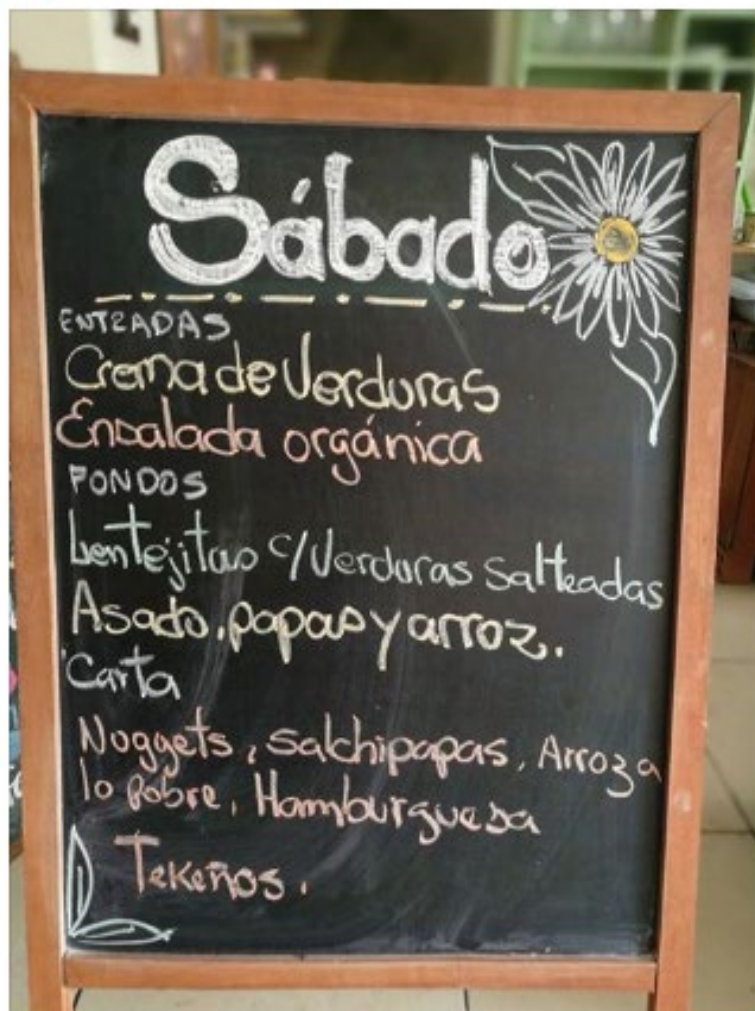 Sábado
ENTRADAS
Crema de Verduras
Ensalada orgánica
FONDOS
Lentejitas c/Verduras salteadas
Asado, papas y arroz.
Carta
Nuggets, salchipapas, Arroz a
lo Pobre, Hamburguesa
Tekeños.